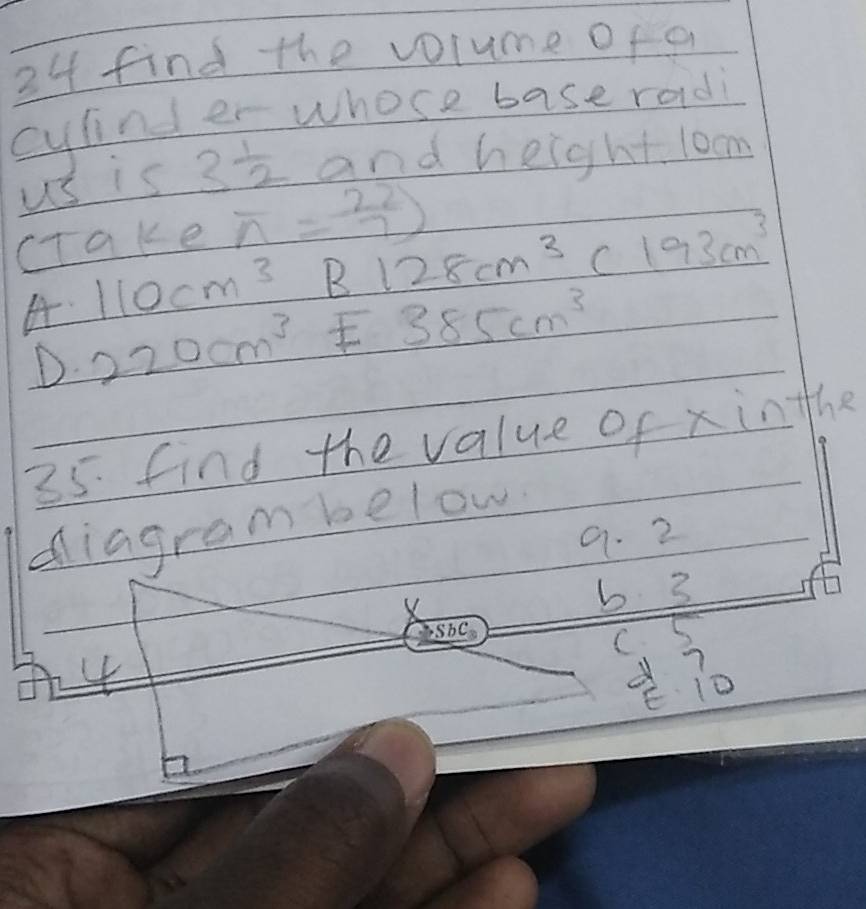 34 find the volume of a
cylinder whose base radi
us is 3 1/2 and height 10cm
(Take π = 22/7)
A. 110cm³ B 128cm³ C 193cm³
D. 220cm³ E 385cm³
35. find the value of x in the
diagram below.
a. 2
b. 3
c. 5
d. 7
E. 10
x
SbC
4